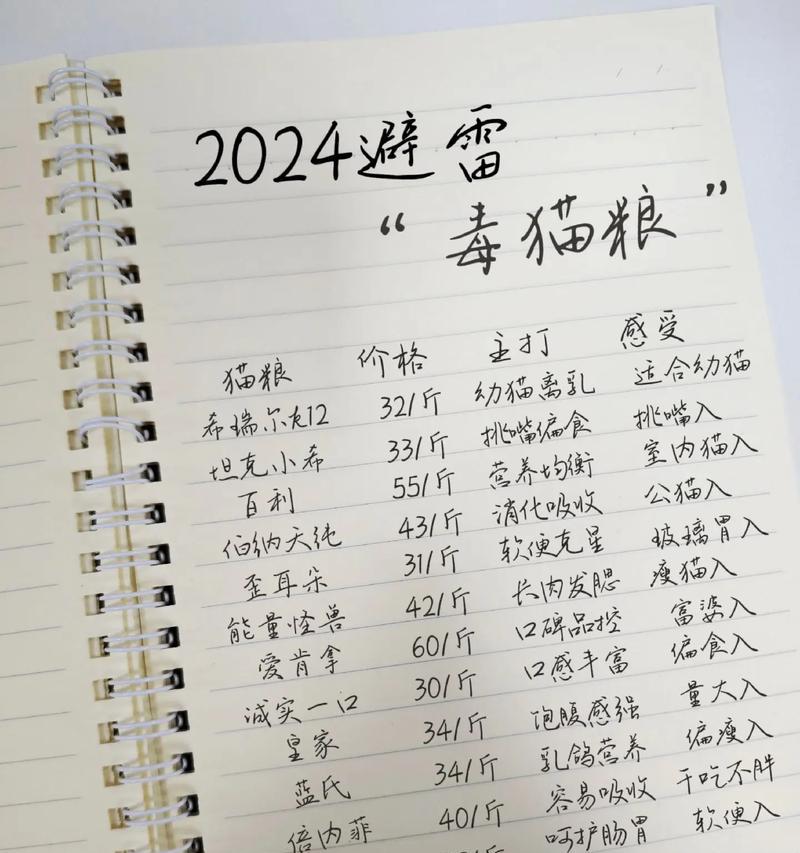 2024避雷
“毒猫粮”
猫粮 价格 主打 感受
希瑞尔K12 32/斤 幼猫离乳 适合幼猫
坦克小希 33/斤 挑嘴偏食 挑嘴入
百利 55/斤 营养均衡 室内猫入
伯纳天纯 43/斤 消化吸收 公猫入
歪耳朵 31/斤 软便克星 玻璃胃入
能量怪兽 42/斤 长肉发腮 瘦猫入
爱肯拿 60/斤 口碑品控 富婆入
诚实一口 30/斤 口感丰富 偏食入
皇家 34/斤 饱腹感强 量大入
蓝氏 34/斤 乳鸽营养 偏瘦入
倍内菲 40/斤 容易吸收 干吃不胖
呵护肠胃 软便入